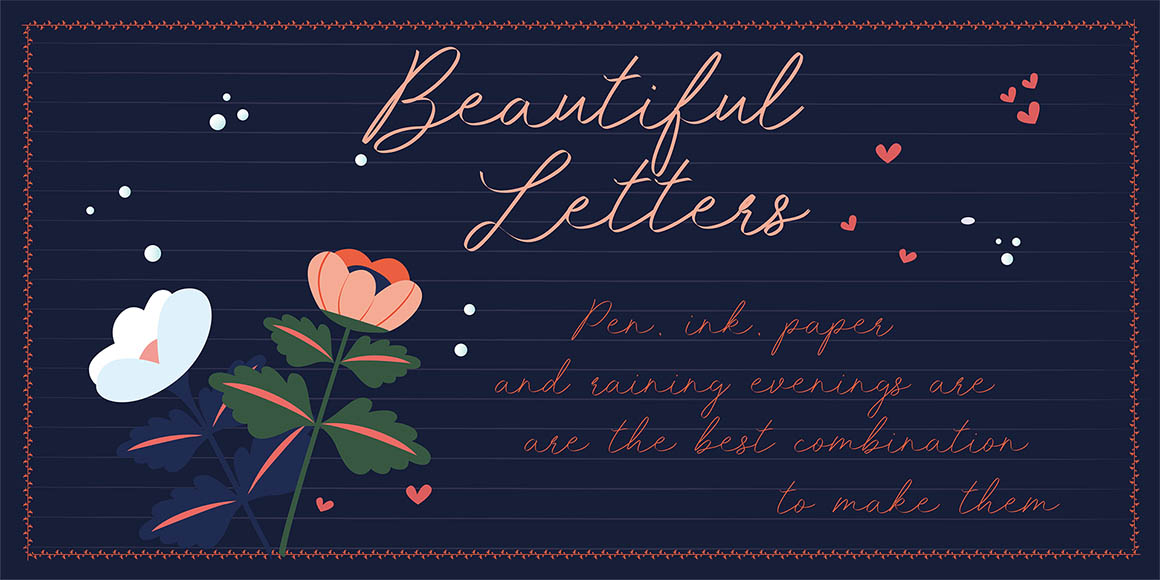 Beautiful
Letters
Pen, ink, paper
and raining evenings are
are the best combination
to make them